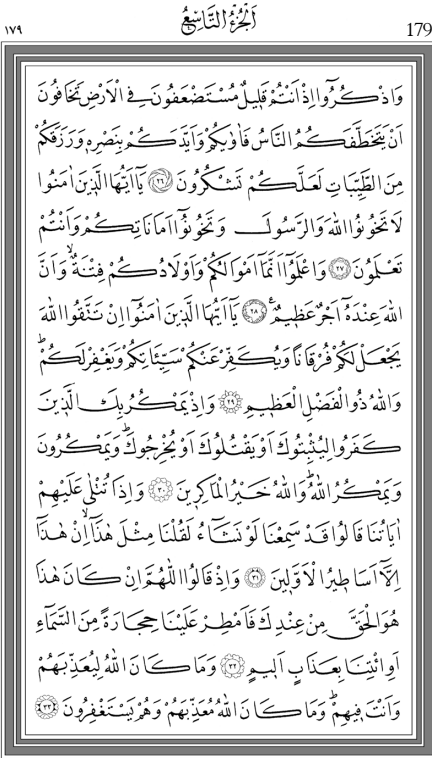 ١٧٩ اَلْجُزْءُ التَّاسِعُ 179
وَاذْكُرُٓوا اِذْ اَنْتُمْ قَل۪يلٌ مُسْتَضْعَفُونَ فِي الْاَرْضِ تَخَافُونَ
اَنْ يَتَخَطَّفَكُمُ النَّاسُ فَاٰوٰيكُمْ وَاَيَّدَكُمْ بِنَصْرِه۪ وَرَزَقَكُمْ
مِنَ الطَّيِّبَاتِ لَعَلَّكُمْ تَشْكُرُونَ ﴿٢٦﴾ يَٓا اَيُّهَا الَّذ۪ينَ اٰمَنُوا
لَا تَخُونُوا اللّٰهَ وَالرَّسُولَ وَتَخُونُٓوا اَمَانَاتِكُمْ وَاَنْتُمْ
تَعْلَمُونَ ﴿٢٧﴾ وَاعْلَمُٓوا اَنَّمَٓا اَمْوَالُكُمْ وَاَوْلَادُكُمْ فِتْنَةٌۙ وَاَنَّ
اللّٰهَ عِنْدَهُٓ اَجْرٌ عَظ۪يمٌ۟ ﴿٢٨﴾ يَٓا اَيُّهَا الَّذ۪ينَ اٰمَنُٓوا اِنْ تَتَّقُوا اللّٰهَ
يَجْعَلْ لَكُمْ فُرْقَاناً وَيُكَفِّرْ عَنْكُمْ سَيِّـَٔاتِكُمْ وَيَغْفِرْ لَكُمْۜ
وَاللّٰهُ ذُو الْفَضْلِ الْعَظ۪يمِ ﴿٢٩﴾ وَاِذْ يَمْكُرُ بِكَ الَّذ۪ينَ
كَفَرُوا لِيُثْبِتُوكَ اَوْ يَقْتُلُوكَ اَوْ يُخْرِجُوكَۜ وَيَمْكُرُونَ
وَيَمْكُرُ اللّٰهُۜ وَاللّٰهُ خَيْرُ الْمَاكِر۪ينَ ﴿٣٠﴾ وَاِذَا تُتْلٰى عَلَيْهِمْ
اٰيَاتُنَا قَالُوا قَدْ سَمِعْنَا لَوْ نَشَٓاءُ لَقُلْنَا مِثْلَ هٰذَٓاۙ اِنْ هٰذَٓا
اِلَّٓا اَسَاط۪يرُ الْاَوَّل۪ينَ ﴿٣١﴾ وَاِذْ قَالُوا اللّٰهُمَّ اِنْ كَانَ هٰذَا
هُوَ الْحَقَّ مِنْ عِنْدِكَ فَاَمْطِرْ عَلَيْنَا حِجَارَةً مِنَ السَّمَٓاءِ
اَوِ ائْتِنَا بِعَذَابٍ اَل۪يمٍ ﴿٣٢﴾ وَمَا كَانَ اللّٰهُ لِيُعَذِّبَهُمْ
وَاَنْتَ ف۪يهِمْۜ وَمَا كَانَ اللّٰهُ مُعَذِّبَهُمْ وَهُمْ يَسْتَغْفِرُونَ ﴿٣٣﴾